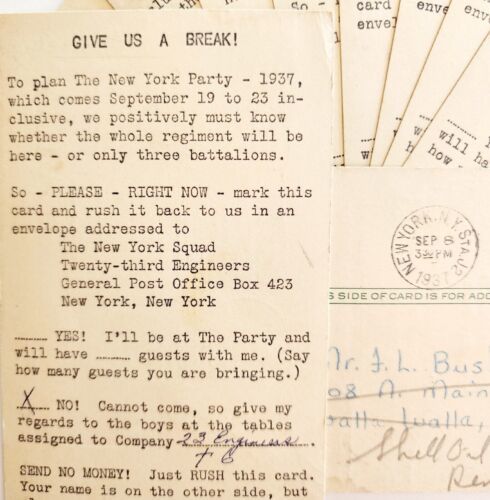 GIVE US A BREAK!
To plan The New York Party - 1937,
which comes September 19 to 23 in-
clusive, we positively must know
whether the whole regiment will be
here - or only three battalions.
So - PLEASE - RIGHT NOW - mark this
card and rush it back to us in an
envelope addressed to
The New York Squad
Twenty-third Engineers
General Post Office Box 423
New York, New York
.......... YES! I'll be at The Party and
will have .......... guests with me. (Say
how many guests you are bringing.)
...X... NO! Cannot come, so give my
regards to the boys at the tables
assigned to Company 23 Engineers.
SEND NO MONEY! Just RUSH this card.
Your name is on the other side, but
card
envel
So -
card
envel
how
NEW YORK, N.Y. STA. J2
SEP 8
3 PM
1937
S SIDE OF CARD IS FOR ADD
Mr. F. L. Bus
08 N. Main
alla Walla,
Shell Oil